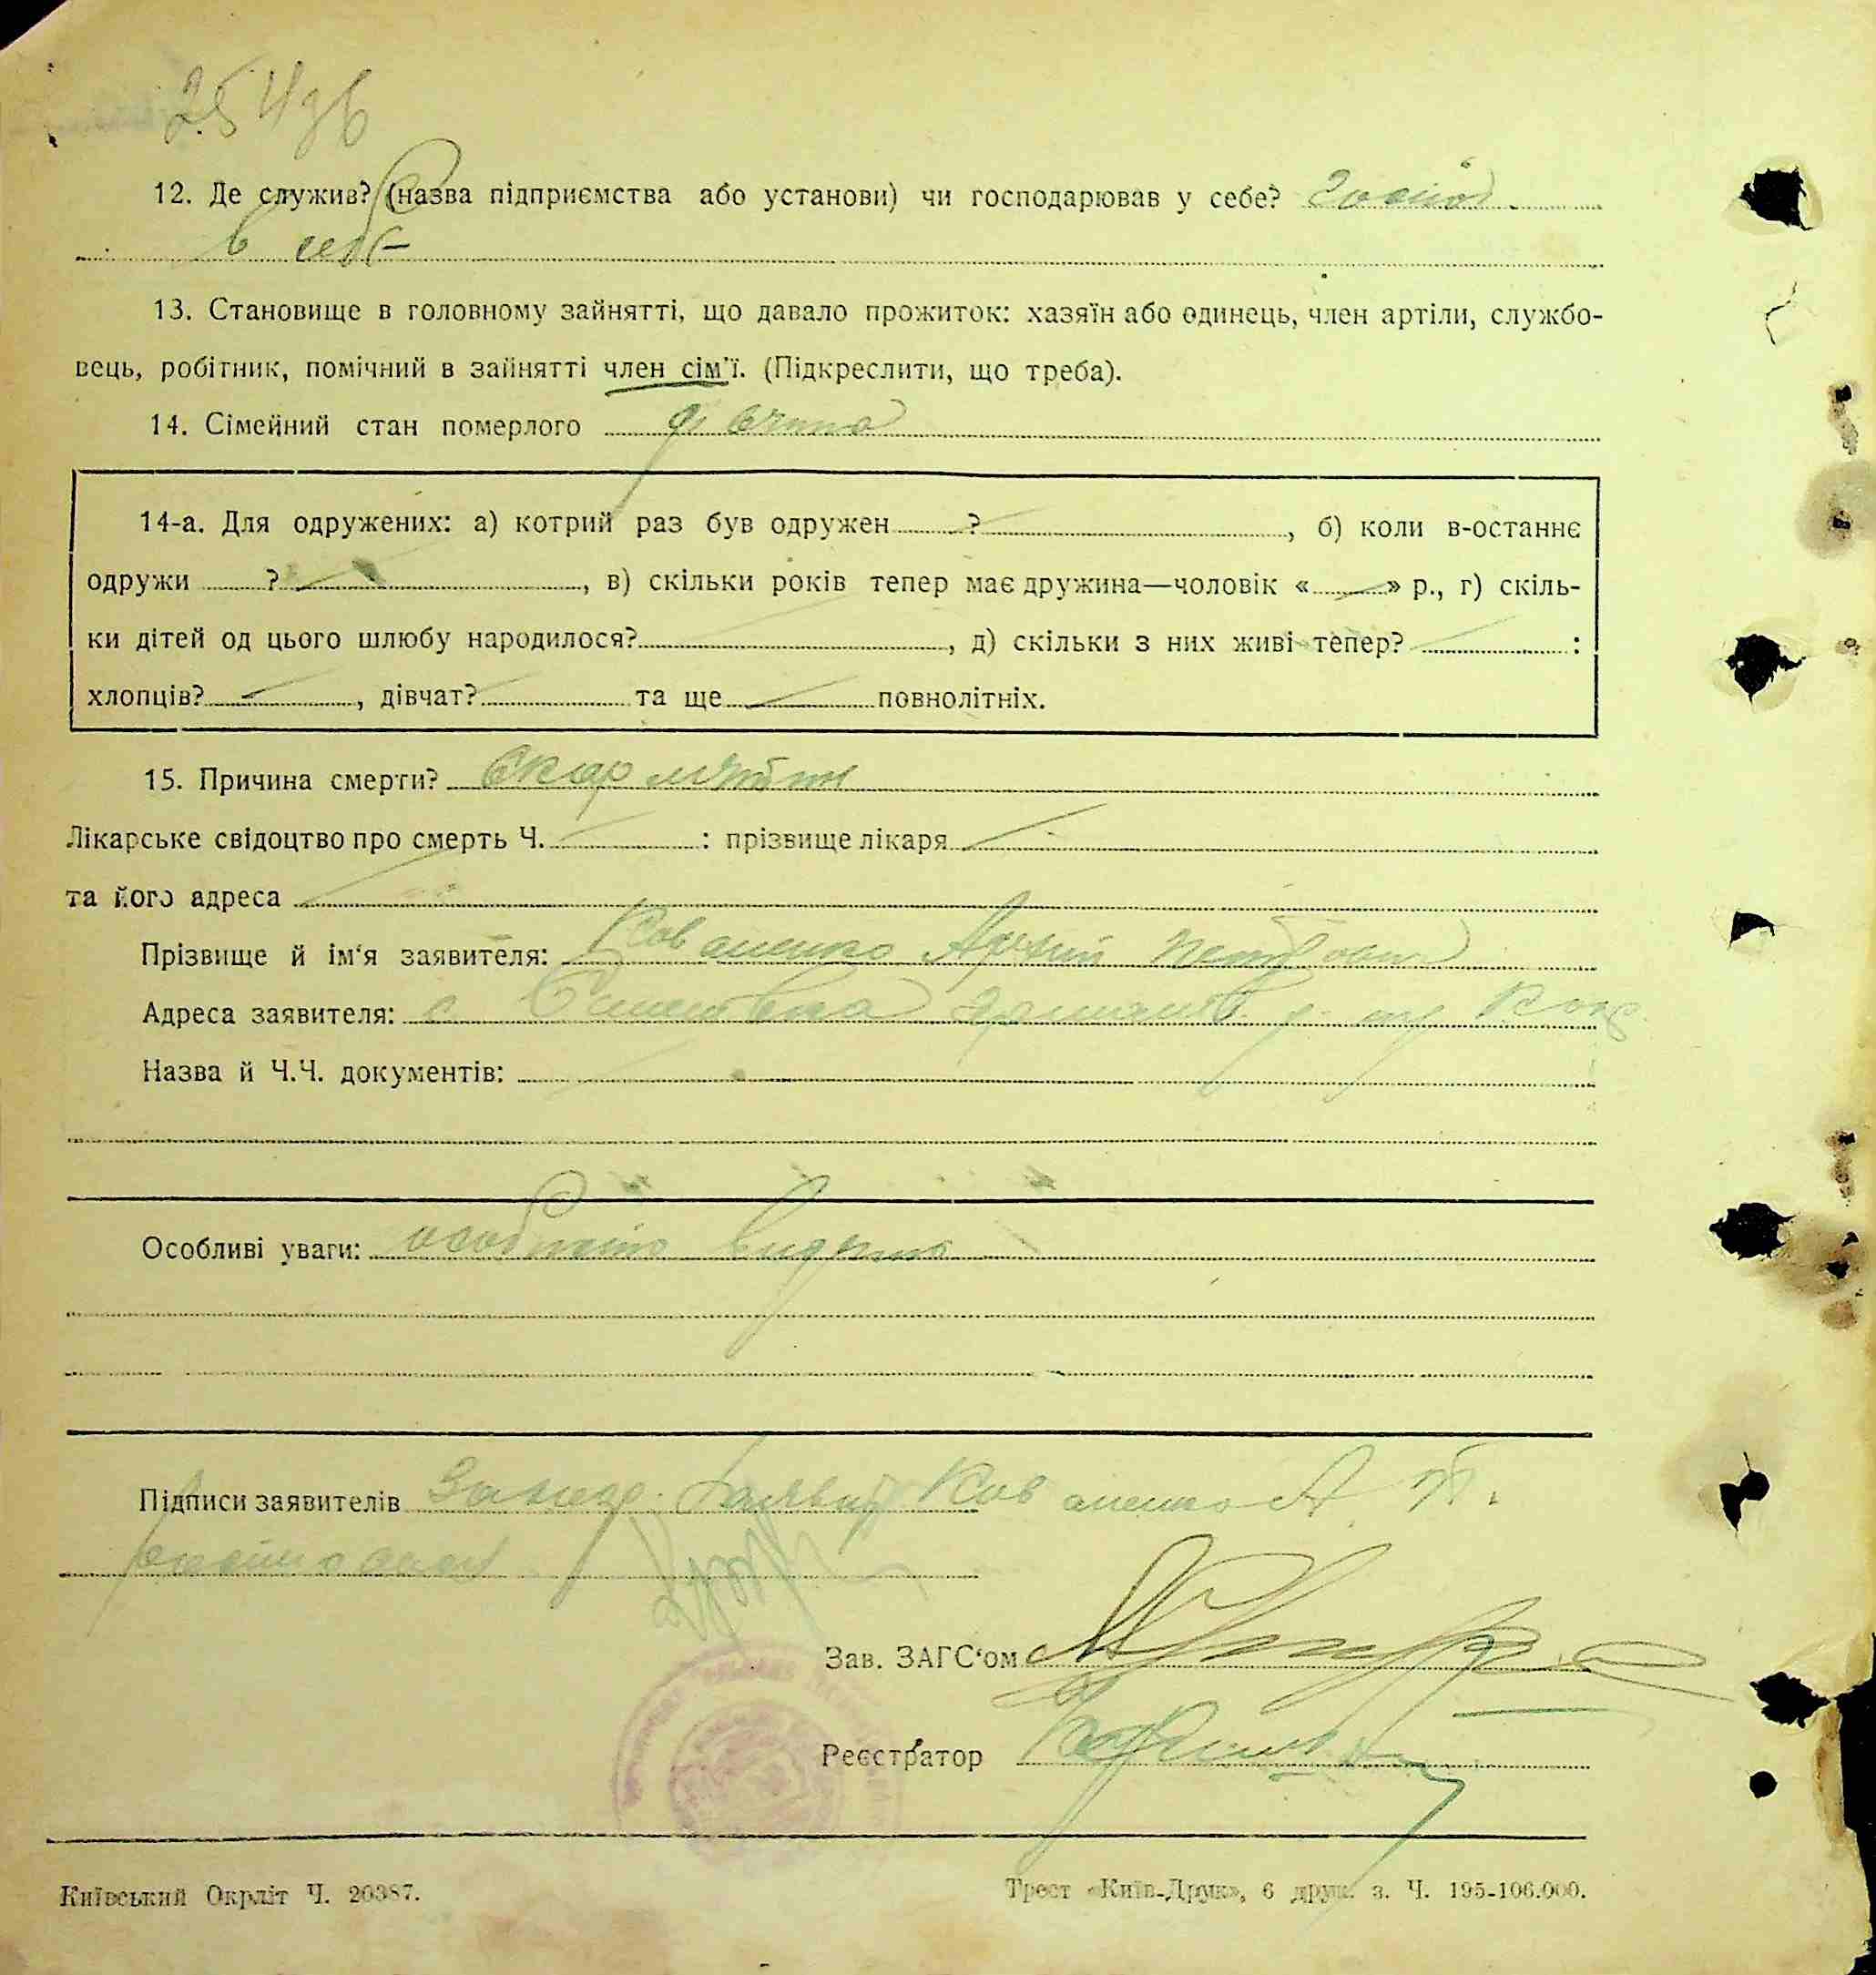 12. Де служив? (назва підприємства або установи) чи господарював у себе?
в себе
13. Становище в головному зайнятті, що давало прожиток: хазяїн або одинець, член артіли, службо-
вець, робітник, помічний в зайнятті член сім'ї. (Підкреслити, що треба).
14. Сімейний стан померлого дівчина
14-а. Для одружених: а) котрий раз був одружен ? , б) коли в-останнє
одружи ? , в) скільки років тепер має дружина—чоловік « » р., г) скіль-
ки дітей од цього шлюбу народилося? , д) скільки з них живі тепер? :
хлопців? , дівчат? та ще повнолітніх.
15. Причина смерти? Скарлятина
Лікарське свідоцтво про смерть Ч. : прізвище лікаря
та його адреса
Прізвище й ім'я заявителя: Коваленко
Адреса заявителя: с
Назва й Ч.Ч. документів:
Особливі уваги: особисто
Підписи заявителів Коваленко А. П.
Зав. ЗАГС'ом
Реєстратор
Київський Окрліт Ч. 20387.
Трест «Київ-Друк», 6 друк. з. Ч. 195-106.000.